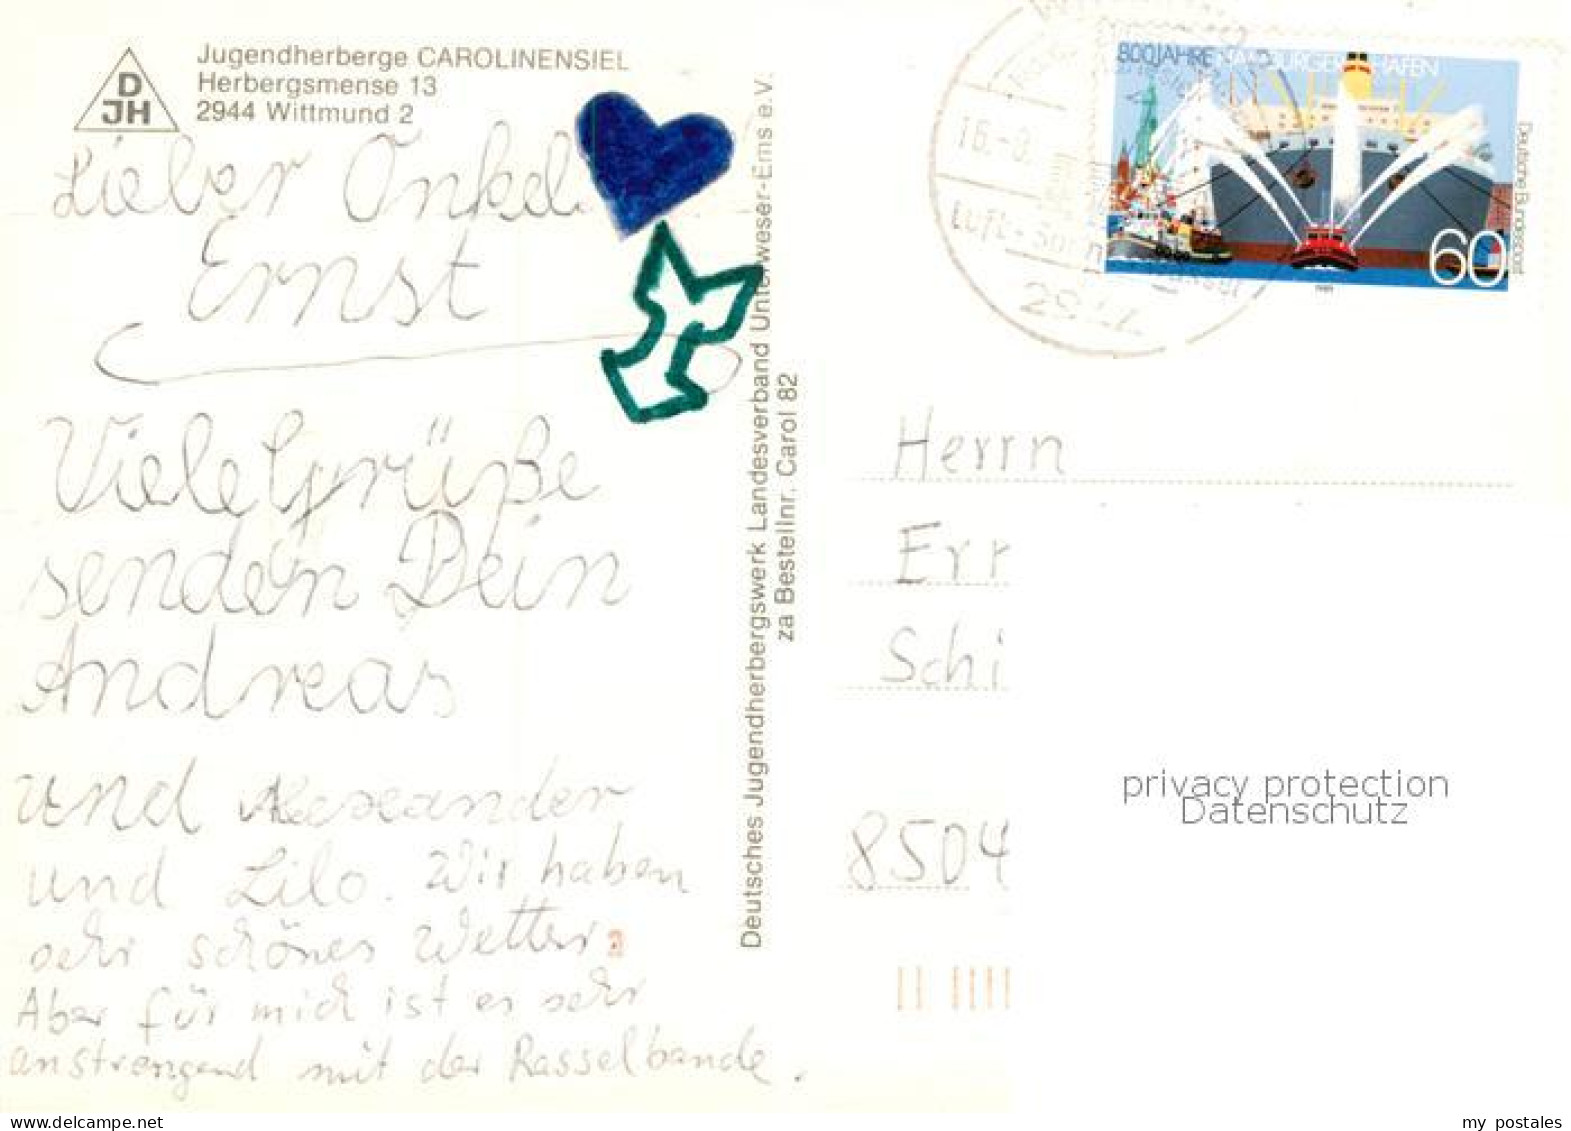 Jugendherberge CAROLINENSIEL
Herbergsmense 13
2944 Wittmund 2
DJH
Lieber Onkel
Ernst
Viele Grüße
senden Dein
Andreas
und Alexander
und Lilo. Wir haben
sehr schönes Wetter.
Aber für mich ist es sehr
anstrengend mit der Rasselbande.
Deutsches Jugendherbergswerk Landesverband Unterweser-Ems e.V.
za Bestellnr. Carol 82
16.-8.
Luft-
800 JAHRE HAMBURGER HAFEN
Deutsche Bundespost
60
1989
Herrn
Err
Schi
8504
privacy protection
Datenschutz
Visit delcampe.net
my_postales